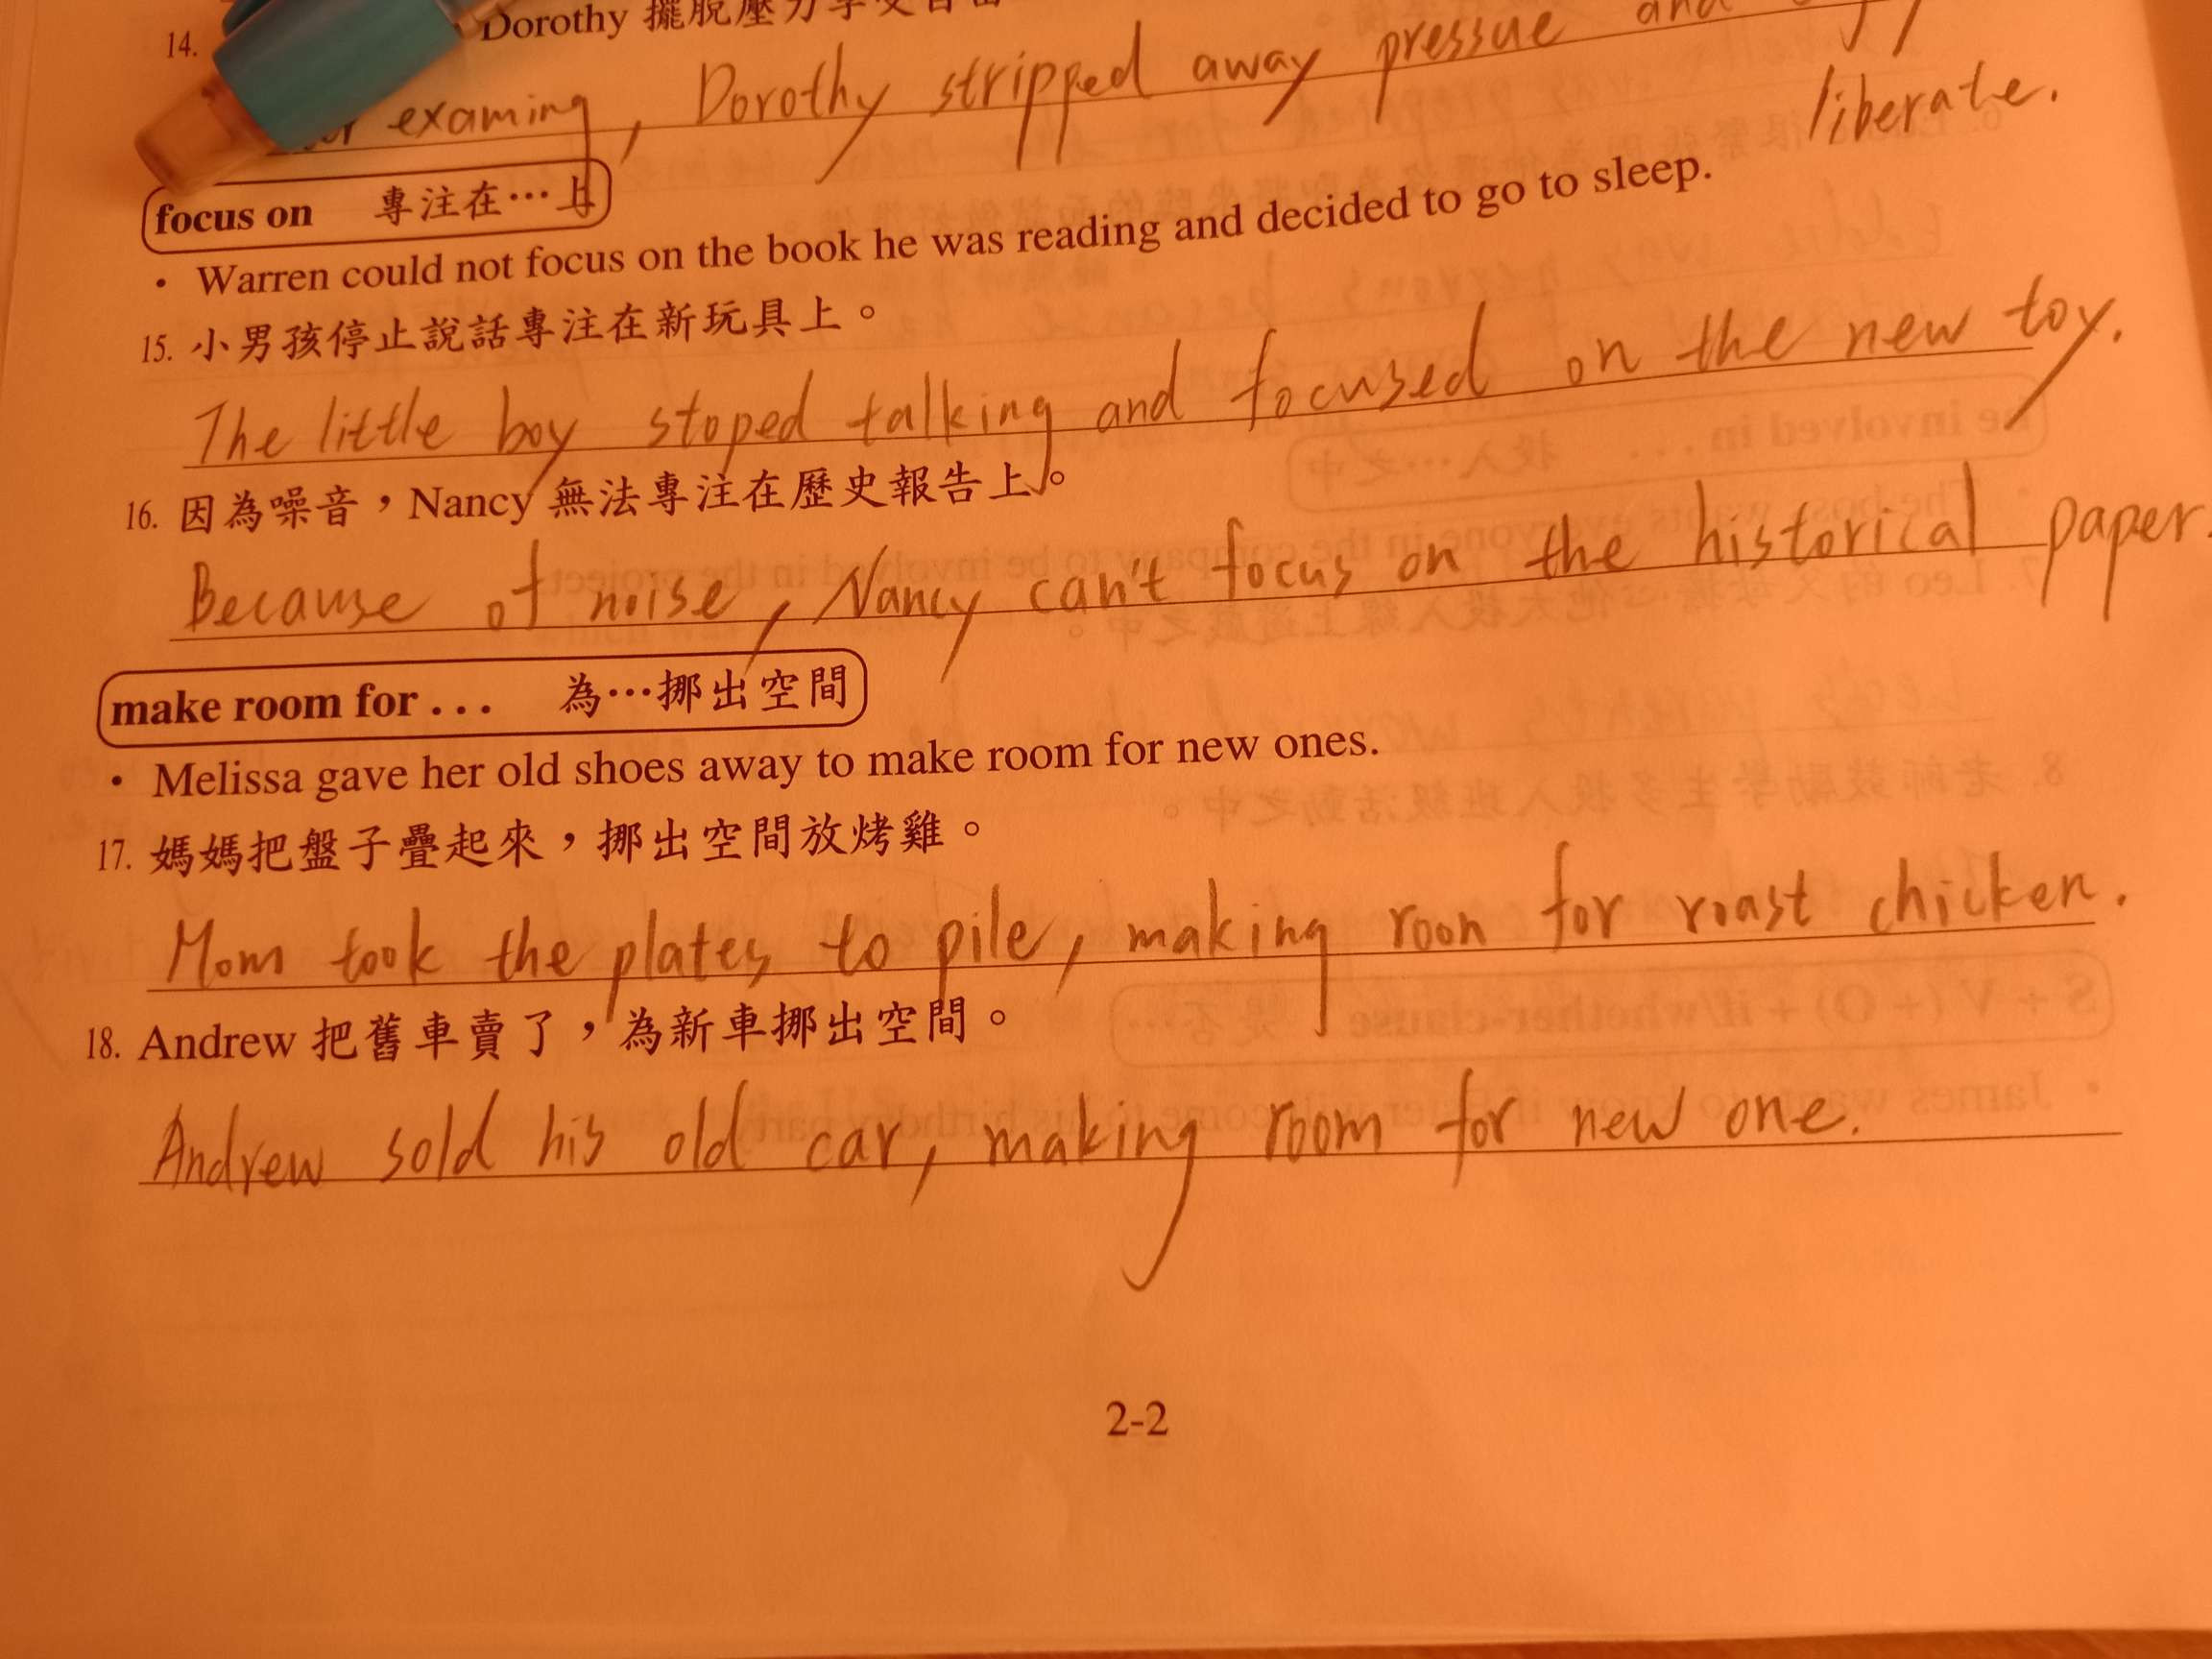 14. Dorothy 擺脫壓力享受自由
examing, Dorothy stripped away pressue and
liberate.
focus on 專注在…上
• Warren could not focus on the book he was reading and decided to go to sleep.
15. 小男孩停止說話專注在新玩具上。
The little boy stoped talking and focused on the new toy.
16. 因為噪音，Nancy 無法專注在歷史報告上。
Because of noise, Nancy can't focus on the historical paper.
make room for . . . 為…挪出空間
• Melissa gave her old shoes away to make room for new ones.
17. 媽媽把盤子疊起來，挪出空間放烤雞。
Mom took the plates to pile, making roon for roast chicken.
18. Andrew 把舊車賣了，為新車挪出空間。
Andrew sold his old car, making room for new one.
2-2